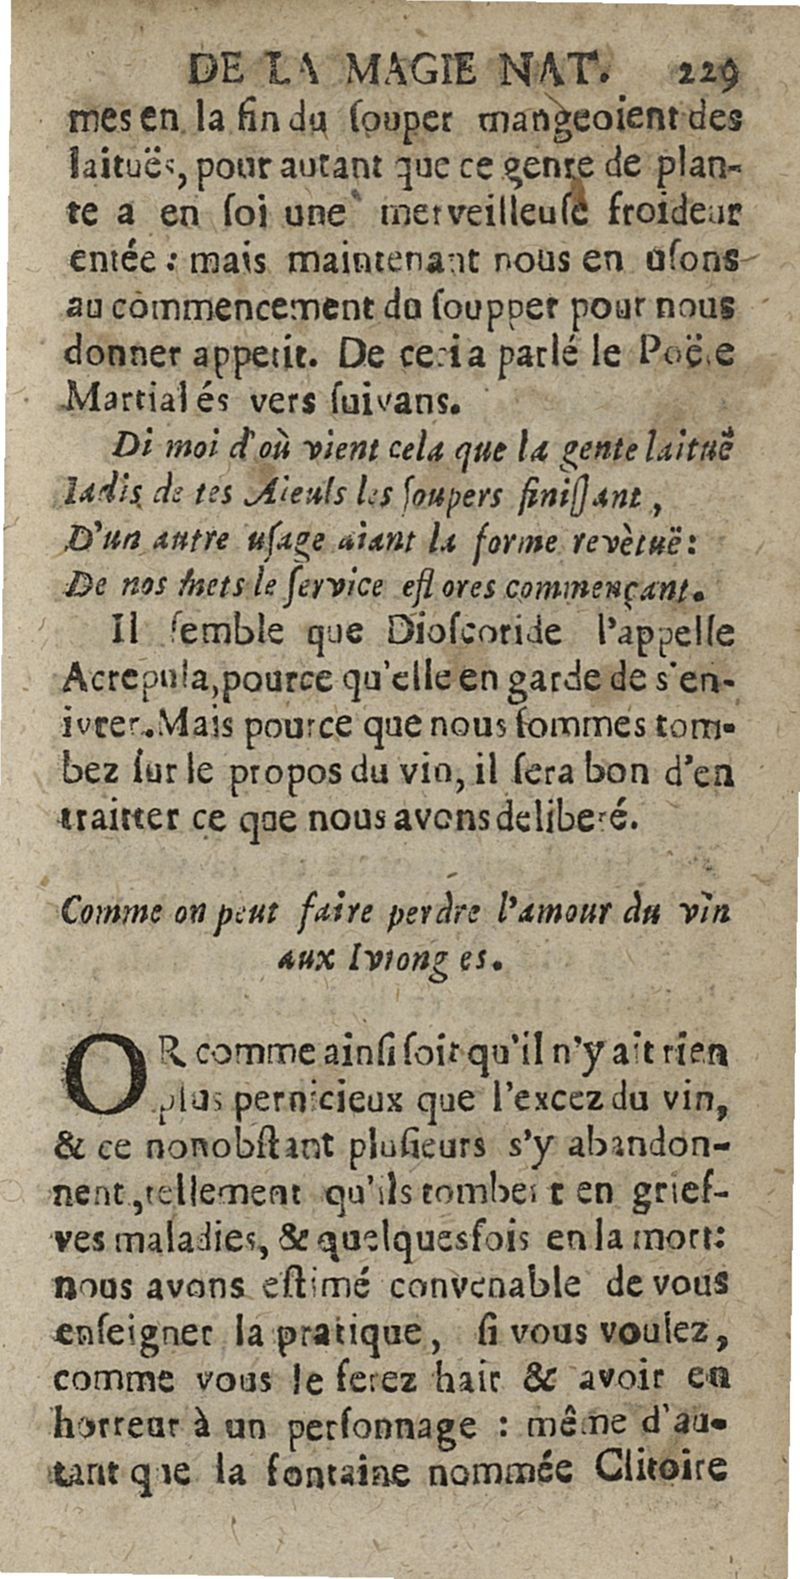 DE LA MAGIE NAT. 229
mes en la fin du ſouper mangeoient des
laituës, pour autant que ce genre de plan-
te a en ſoi une merveilleuſe froideur
entée : mais maintenant nous en uſons
au commencement du ſoupper pour nous
donner appetit. De ceci a parlé le Poëte
Martial és vers ſuivans.
Di moi d'où vient cela que la gente laituë
Iadis de tes Aieuls les ſoupers finiſſant,
D'un autre uſage aiant la forme revètuë:
De nos mets le ſervice eſt ores commençant.
Il ſemble que Dioſcoride l'appelle
Acrepula, pource qu'elle en garde de s'en-
ivrer. Mais pource que nous ſommes tom-
bez ſur le propos du vin, il ſera bon d'en
traitter ce que nous avons deliberé.
Comme on peut faire perdre l'amour du vin
aux Ivrong es.
OR comme ainſi ſoit qu'il n'y ait rien
plus pernicieux que l'excez du vin,
& ce nonobſtant pluſieurs s'y abandon-
nent, tellement qu'ils tombent en grief-
ves maladies, & quelquesfois en la mort:
nous avons eſtimé convenable de vous
enſeigner la pratique, ſi vous voulez,
comme vous le ferez hair & avoir en
horreur à un perſonnage : même d'au-
tant que la fontaine nommée Clitoire